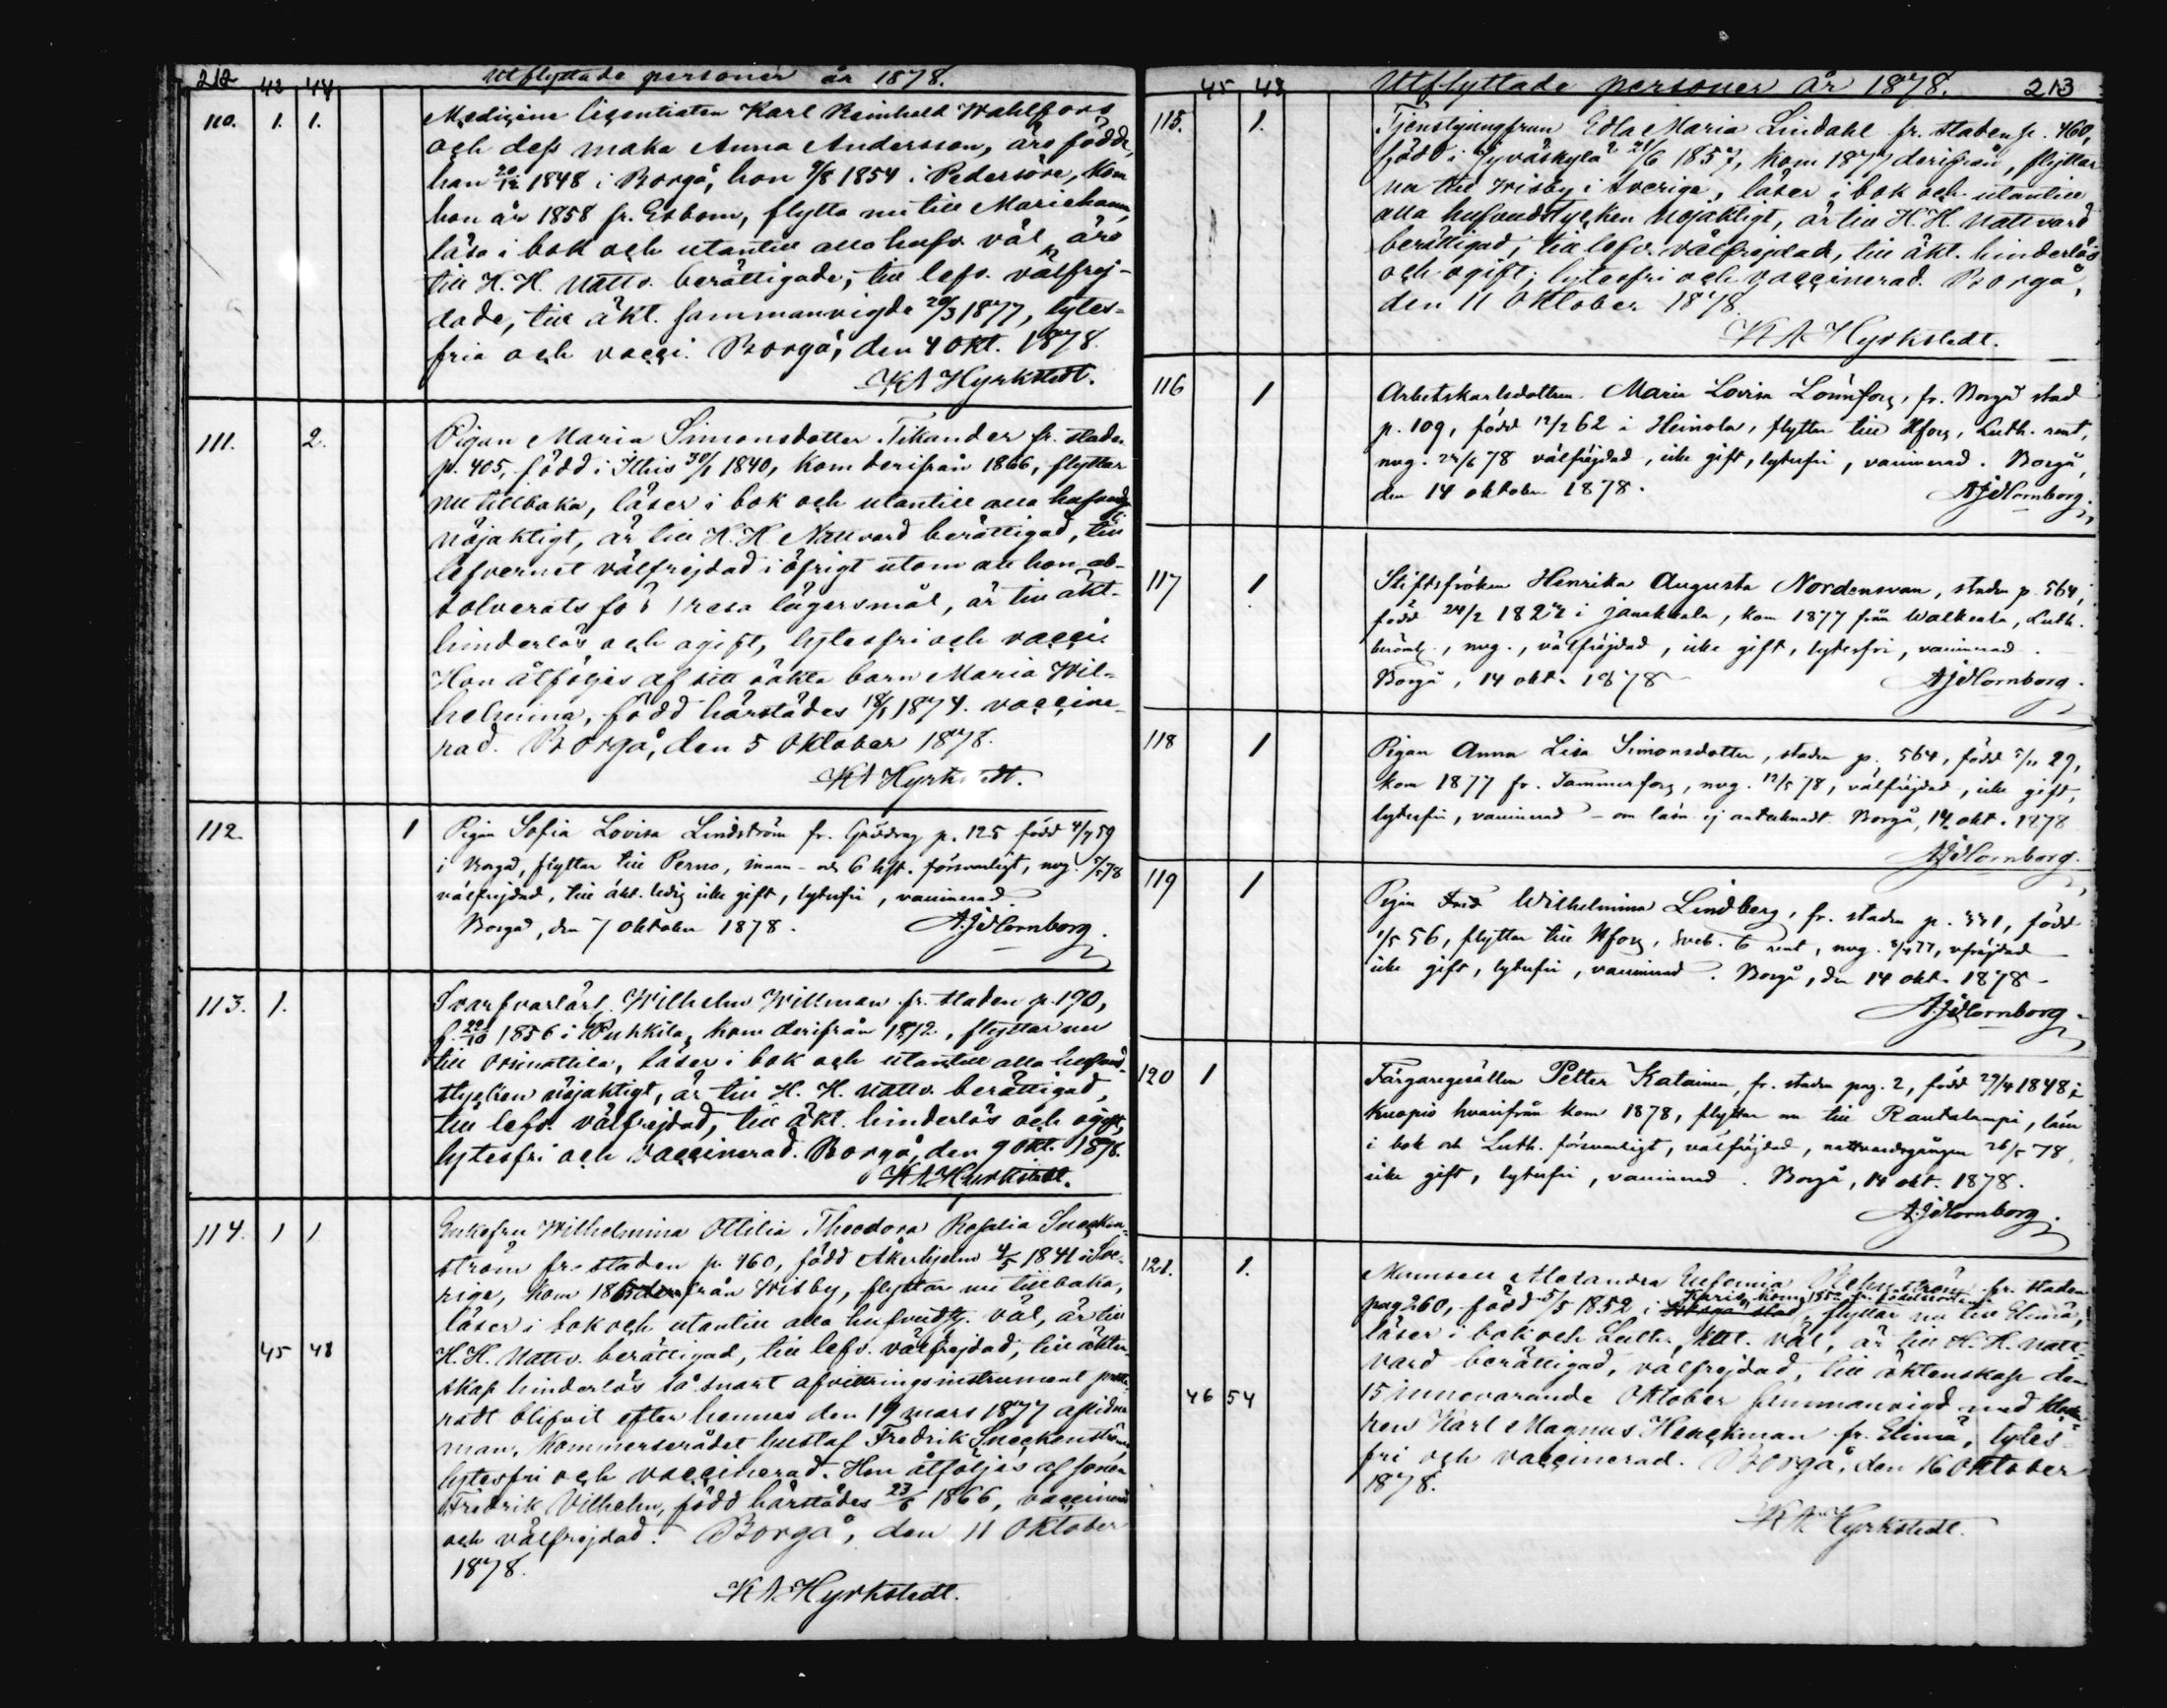 212 42 44 Utflyttade personer år 1878.
110. 1. 1. Medicine licentiaten Karl Reinhold Wahlfors
och dess maka Anna Andersson, äro födde,
han 20/12 1848 i Borgå, hon 7/8 1854 i Pedersöre, kom
hon år 1858 fr. Esbom, flytta nu till Mariehamn,
läsa i bok och utantill alla hufv. väl, äro
till H. H. Nattv. berättigade, till lefv. välfrej-
dade, till äkt. sammanvigde 20/3 1877, lytes-
fria och vacci. Borgå, den 4 Okt. 1878.
KA Hyrkstedt.
111. 2. Pigan Maria Simonsdotter Tikander fr. staden
p. 405, född i Ithis 30/1 1840, kom derifrån 1866, flyttar
nu tillbaka, läser i bok och utantill alla hufvudst.
nöjaktigt, är till H. H. Nattvard berättigad, till
lefvernet välfrejdad i öfrigt utom att hon ab-
solverats för 1 resa lägersmål, är till äkt.
hinderlös och ogift, lytesfri och vacci.
Hon åtföljes af sitt oäkta barn Maria Wil-
helmina, född härstädes 18/1 1874. vaccine-
rad. Borgå, den 5 Oktober 1878.
KA Hyrkstedt.
112. 1 Pigan Sofia Lovisa Lindström fr. p. 125 född 4/7 59
i Borgå, flyttar till Perno, innan- och 6 hft. försvarligt, nvg. /78
välfrejdad, till äkt. ledig icke gift, lytesfri, vaccinerad.
Borgå, den 7 oktober 1878. A.J. Hornborg.
113. 1. Svarfvarlärl. Wilhelm Willman fr. staden p. 190,
f. 22/10 1856 i Pukkila, kom derifrån 1872, flyttar nu
till Orimattila, läser i bok och utantill alla hufvud-
stycken nöjaktigt, är till H. H. Nattv. berättigad,
till lefv. välfrejdad, till äkt. hinderlös och ogift,
lytesfri och vaccinerad. Borgå, den 9 Okt. 1878.
KA Hyrkstedt.
114. 1 1 Enkefru Wilhelmina Ottilia Theodora Rosalia Sneckens-
ström fr. staden p. 460, född Åkerhjelm 4/5 1841 i Sve-
rige, kom 1865 från Wisby, flyttar nu tillbaka,
läser i bok och utantill alla hufvudst. väl, är till
45 48 H. H. Nattv. berättigad, till lefv. välfrejdad, till äkten-
skap hinderlös så snart afvittringsinstrument preste-
radt blifvit efter hennes den 19 mars 1877 aflidne
man, Kommerserådet Gustaf Fredrik Sneckenström,
lytesfri och vaccinerad. Hon åtföljes af sonen
Fredrik Vilhelm, född härstädes 23/8 1866, vaccinerad
och välfrejdad. Borgå, den 11 Oktober
1878.
KA Hyrkstedt.
45 48 Utflyttade personer år 1878. 213
115. 1. Tjenstjungfrun Edla Maria Lindahl fr. staden p. 460,
född i Jyväskylä 21/6 1857, kom 1877 derifrån, flyttar
nu till Wisby i Sverige, läser i bok och utantill
alla hufvudstycken nöjaktigt, är till H. H. Nattvard
berättigad, till lefv. välfrejdad, till äkt. hinderlös
och ogift, lytesfri och vaccinerad. Borgå,
den 11 Oktober 1878.
KA Hyrkstedt.
116 1 Arbetskarlsdottern Maria Lovisa Lönnfors, fr. Borgå stad
p. 109, född 12/2 62 i Heinola, flyttar till Hfors, Luth. rent,
nvg. 24/6 78 välfrejdad, icke gift, lytesfri, vaccinerad. Borgå,
den 14 oktober 1878. A.J. Hornborg.
117 1 Stiftsfröken Henrika Augusta Nordensvan, staden p. 564,
född 24/2 1822 i Janakkala, kom 1877 från Walkeala, Luth.
berömt., nvg., välfrejdad, icke gift, lytesfri, vaccinerad.
Borgå, 14 okt. 1878 A.J. Hornborg.
118 1 Pigan Anna Lisa Simonsdotter, staden p. 564, född 5/11 29,
kom 1877 fr. Tammerfors, nvg. 12/5 78, välfrejdad, icke gift,
lytesfri, vaccinerad – om läsn. ej antecknadt. Borgå, 14 okt. 1878
A.J. Hornborg.
119 1 Pigan Wilhelmina Lindberg, fr. staden p. 1, född
1/5 56, flyttar till Hfors, rent, nvg. 77, vfrejdad
icke gift, lytesfri, vaccinerad. Borgå, den 14 okt. 1878 –
A.J. Hornborg
120 1 Färgaregesällen Petter Katainen, fr. staden pag. 2, född 29/4 1848 i
Kuopio hvarifrån kom 1878, flyttar nu till Rautalampi, läser
i bok och Luth. försvarligt, välfrejdad, nattvardsgången 26/5 78,
icke gift, lytesfri, vaccinerad. Borgå, 14 okt. 1878.
A.J. Hornborg.
121. 1. Mamsell Alexandra Eufemia Rehnström fr. staden
pag 260, född 5/5 1852 i Borgå stad Karis, kom, flyttar nu till Elimä,
läser i bok och Luth. kat. väl, är till H. H. Natt-
vard berättigad, välfrejdad, till äktenskap den
46 54 15 innevarande Oktober sammanvigd med klocka-
ren Karl Magnus Henckman fr. Elimä, lytes-
fri och vaccinerad. Borgå, den 16 Oktober
1878.
KA Hyrkstedt.